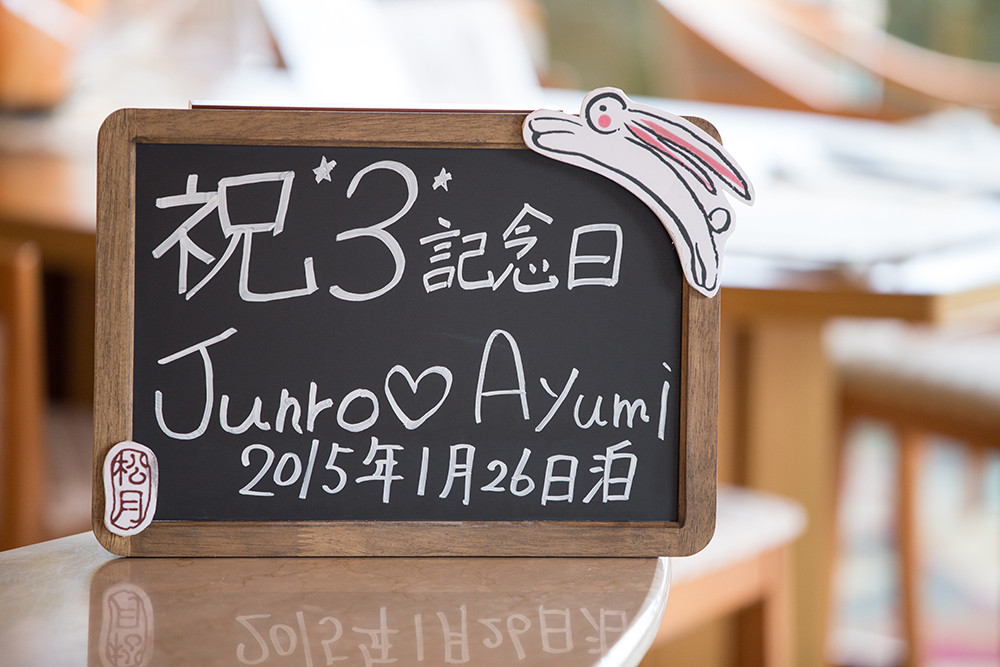 祝☆3☆記念日
Junro♡Ayumi
2015年1月26日泊
松月